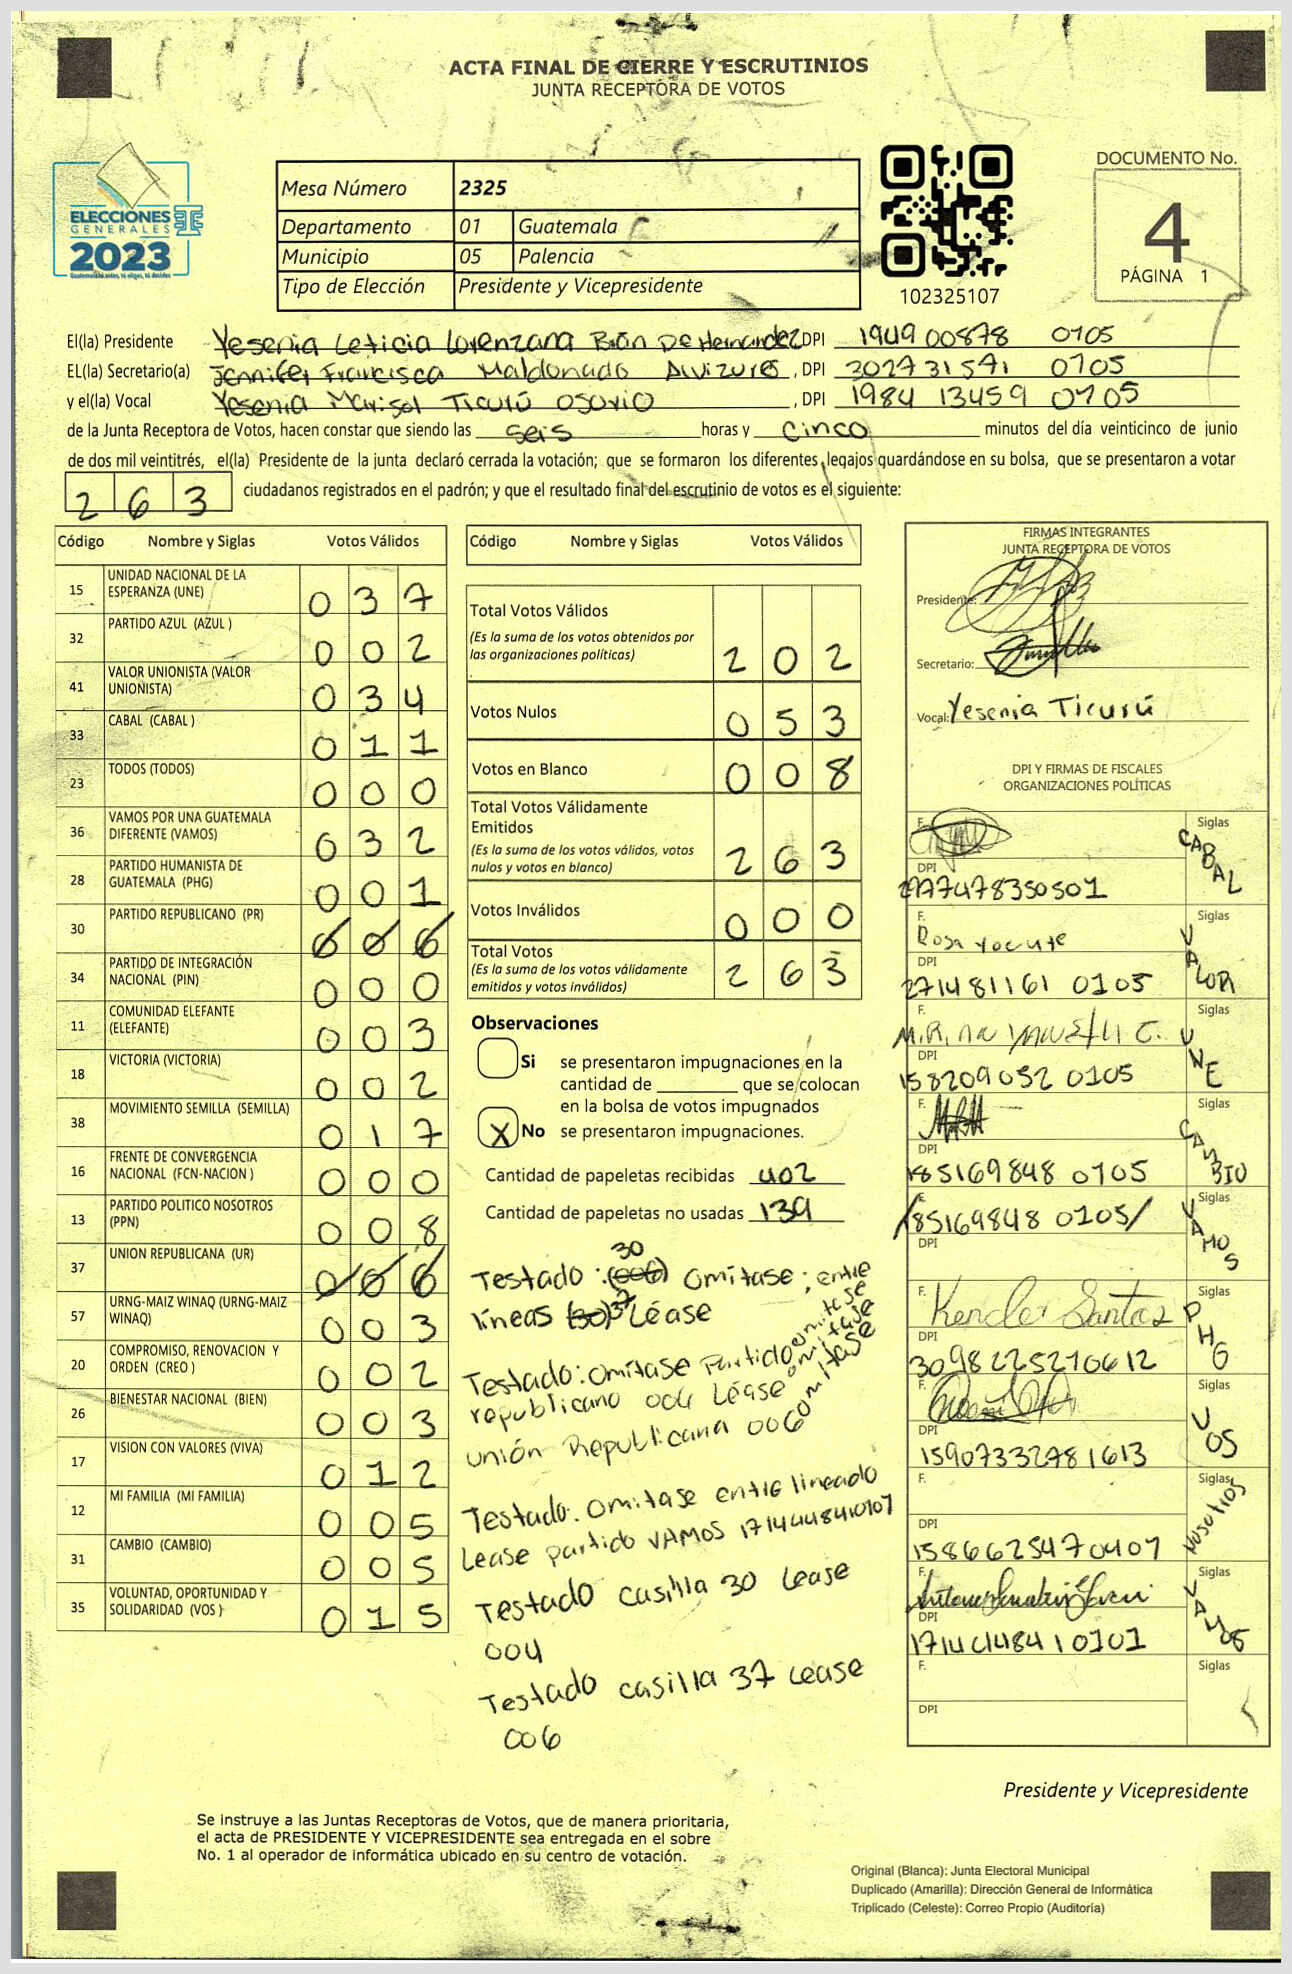 ACTA FINAL DE CIERRE Y ESCRUTINIOS
JUNTA RECEPTORA DE VOTOS
ELECCIONES
GENERALES
2023
Mesa Número 2325
Departamento 01 Guatemala
Municipio 05 Palencia
Tipo de Elección Presidente y Vicepresidente
102325107
DOCUMENTO No.
4
PÁGINA 1
El(la) Presidente Yesenia Leticia Lorenzana Brán De Hernandez DPI 1949 00878 0105
EL(la) Secretario(a) Jennifer Francisca Maldonado Alvizures, DPI 3027 31571 0105
y el(la) Vocal Yesenia Marisol Ticurú Osorio, DPI 1984 13459 0105
de la Junta Receptora de Votos, hacen constar que siendo las seis horas y cinco minutos del día veinticinco de junio
de dos mil veintitrés, el(la) Presidente de la junta declaró cerrada la votación; que se formaron los diferentes legajos guardándose en su bolsa, que se presentaron a votar
263 ciudadanos registrados en el padrón; y que el resultado final del escrutinio de votos es el siguiente:
Código Nombre y Siglas Votos Válidos
15 UNIDAD NACIONAL DE LA ESPERANZA (UNE) 037
32 PARTIDO AZUL (AZUL ) 002
41 VALOR UNIONISTA (VALOR UNIONISTA) 034
33 CABAL (CABAL ) 011
23 TODOS (TODOS) 000
36 VAMOS POR UNA GUATEMALA DIFERENTE (VAMOS) 032
28 PARTIDO HUMANISTA DE GUATEMALA (PHG) 001
30 PARTIDO REPUBLICANO (PR)
34 PARTIDO DE INTEGRACIÓN NACIONAL (PIN) 000
11 COMUNIDAD ELEFANTE (ELEFANTE) 003
18 VICTORIA (VICTORIA) 002
38 MOVIMIENTO SEMILLA (SEMILLA) 017
16 FRENTE DE CONVERGENCIA NACIONAL (FCN-NACION ) 000
13 PARTIDO POLITICO NOSOTROS (PPN) 008
37 UNION REPUBLICANA (UR) 006
57 URNG-MAIZ WINAQ (URNG-MAIZ WINAQ) 003
20 COMPROMISO, RENOVACION Y ORDEN (CREO ) 002
26 BIENESTAR NACIONAL (BIEN) 003
17 VISION CON VALORES (VIVA) 012
12 MI FAMILIA (MI FAMILIA) 005
31 CAMBIO (CAMBIO) 005
35 VOLUNTAD, OPORTUNIDAD Y SOLIDARIDAD (VOS ) 015
Código Nombre y Siglas Votos Válidos
Total Votos Válidos 202
(Es la suma de los votos obtenidos por
las organizaciones politicas)
Votos Nulos 053
Votos en Blanco 008
Total Votos Válidamente
Emitidos 263
(Es la suma de los votos válidos, votos
nulos y votos en blanco)
Votos Inválidos 000
Total Votos 263
(Es la suma de los votos válidamente
emitidos y votos inválidos)
Observaciones
Si se presentaron impugnaciones en la
cantidad de ________ que se colocan
en la bolsa de votos impugnados
X No se presentaron impugnaciones.
Cantidad de papeletas recibidas 402
Cantidad de papeletas no usadas 139
30
Testado: (006) omitase; entre
líneas (30) 37 Léase omitase
Testado: omítase Partido omitase
republicano 004 Léase omitase
unión Republicana 006 omitase
Testado: omitase entre lineado
Lease partido VAMOS 1714448410107
Testado casilla 30 Lease
004
Testado casilla 37 Lease
006
FIRMAS INTEGRANTES
JUNTA RECEPTORA DE VOTOS
Presidente:
Secretario:
Vocal: Yesenia Ticurú
DPI Y FIRMAS DE FISCALES
ORGANIZACIONES POLÍTICAS
F. Siglas CABAL
DPI 2777478350501
F. Rosa Yocute Siglas VALOR
DPI 271481161 0105
F. Siglas UNE
DPI 158209052 0105
F. Siglas CAMBIO
DPI 185169848 0105
F. /85169848 0105/ Siglas VAMOS
DPI
F. Kender Santos Siglas PHG
DPI 3098225210612
F. Siglas VOS
DPI 1590733278 1613
F. Siglas Nosotros
DPI 1586625470407
F. Siglas VAMOS
DPI 1714448410101
F. Siglas
DPI
Presidente y Vicepresidente
Se instruye a las Juntas Receptoras de Votos, que de manera prioritaria,
el acta de PRESIDENTE Y VICEPRESIDENTE sea entregada en el sobre
No. 1 al operador de informática ubicado en su centro de votación.
Original (Blanca): Junta Electoral Municipal
Duplicado (Amarilla): Dirección General de Informática
Triplicado (Celeste): Correo Propio (Auditoría)